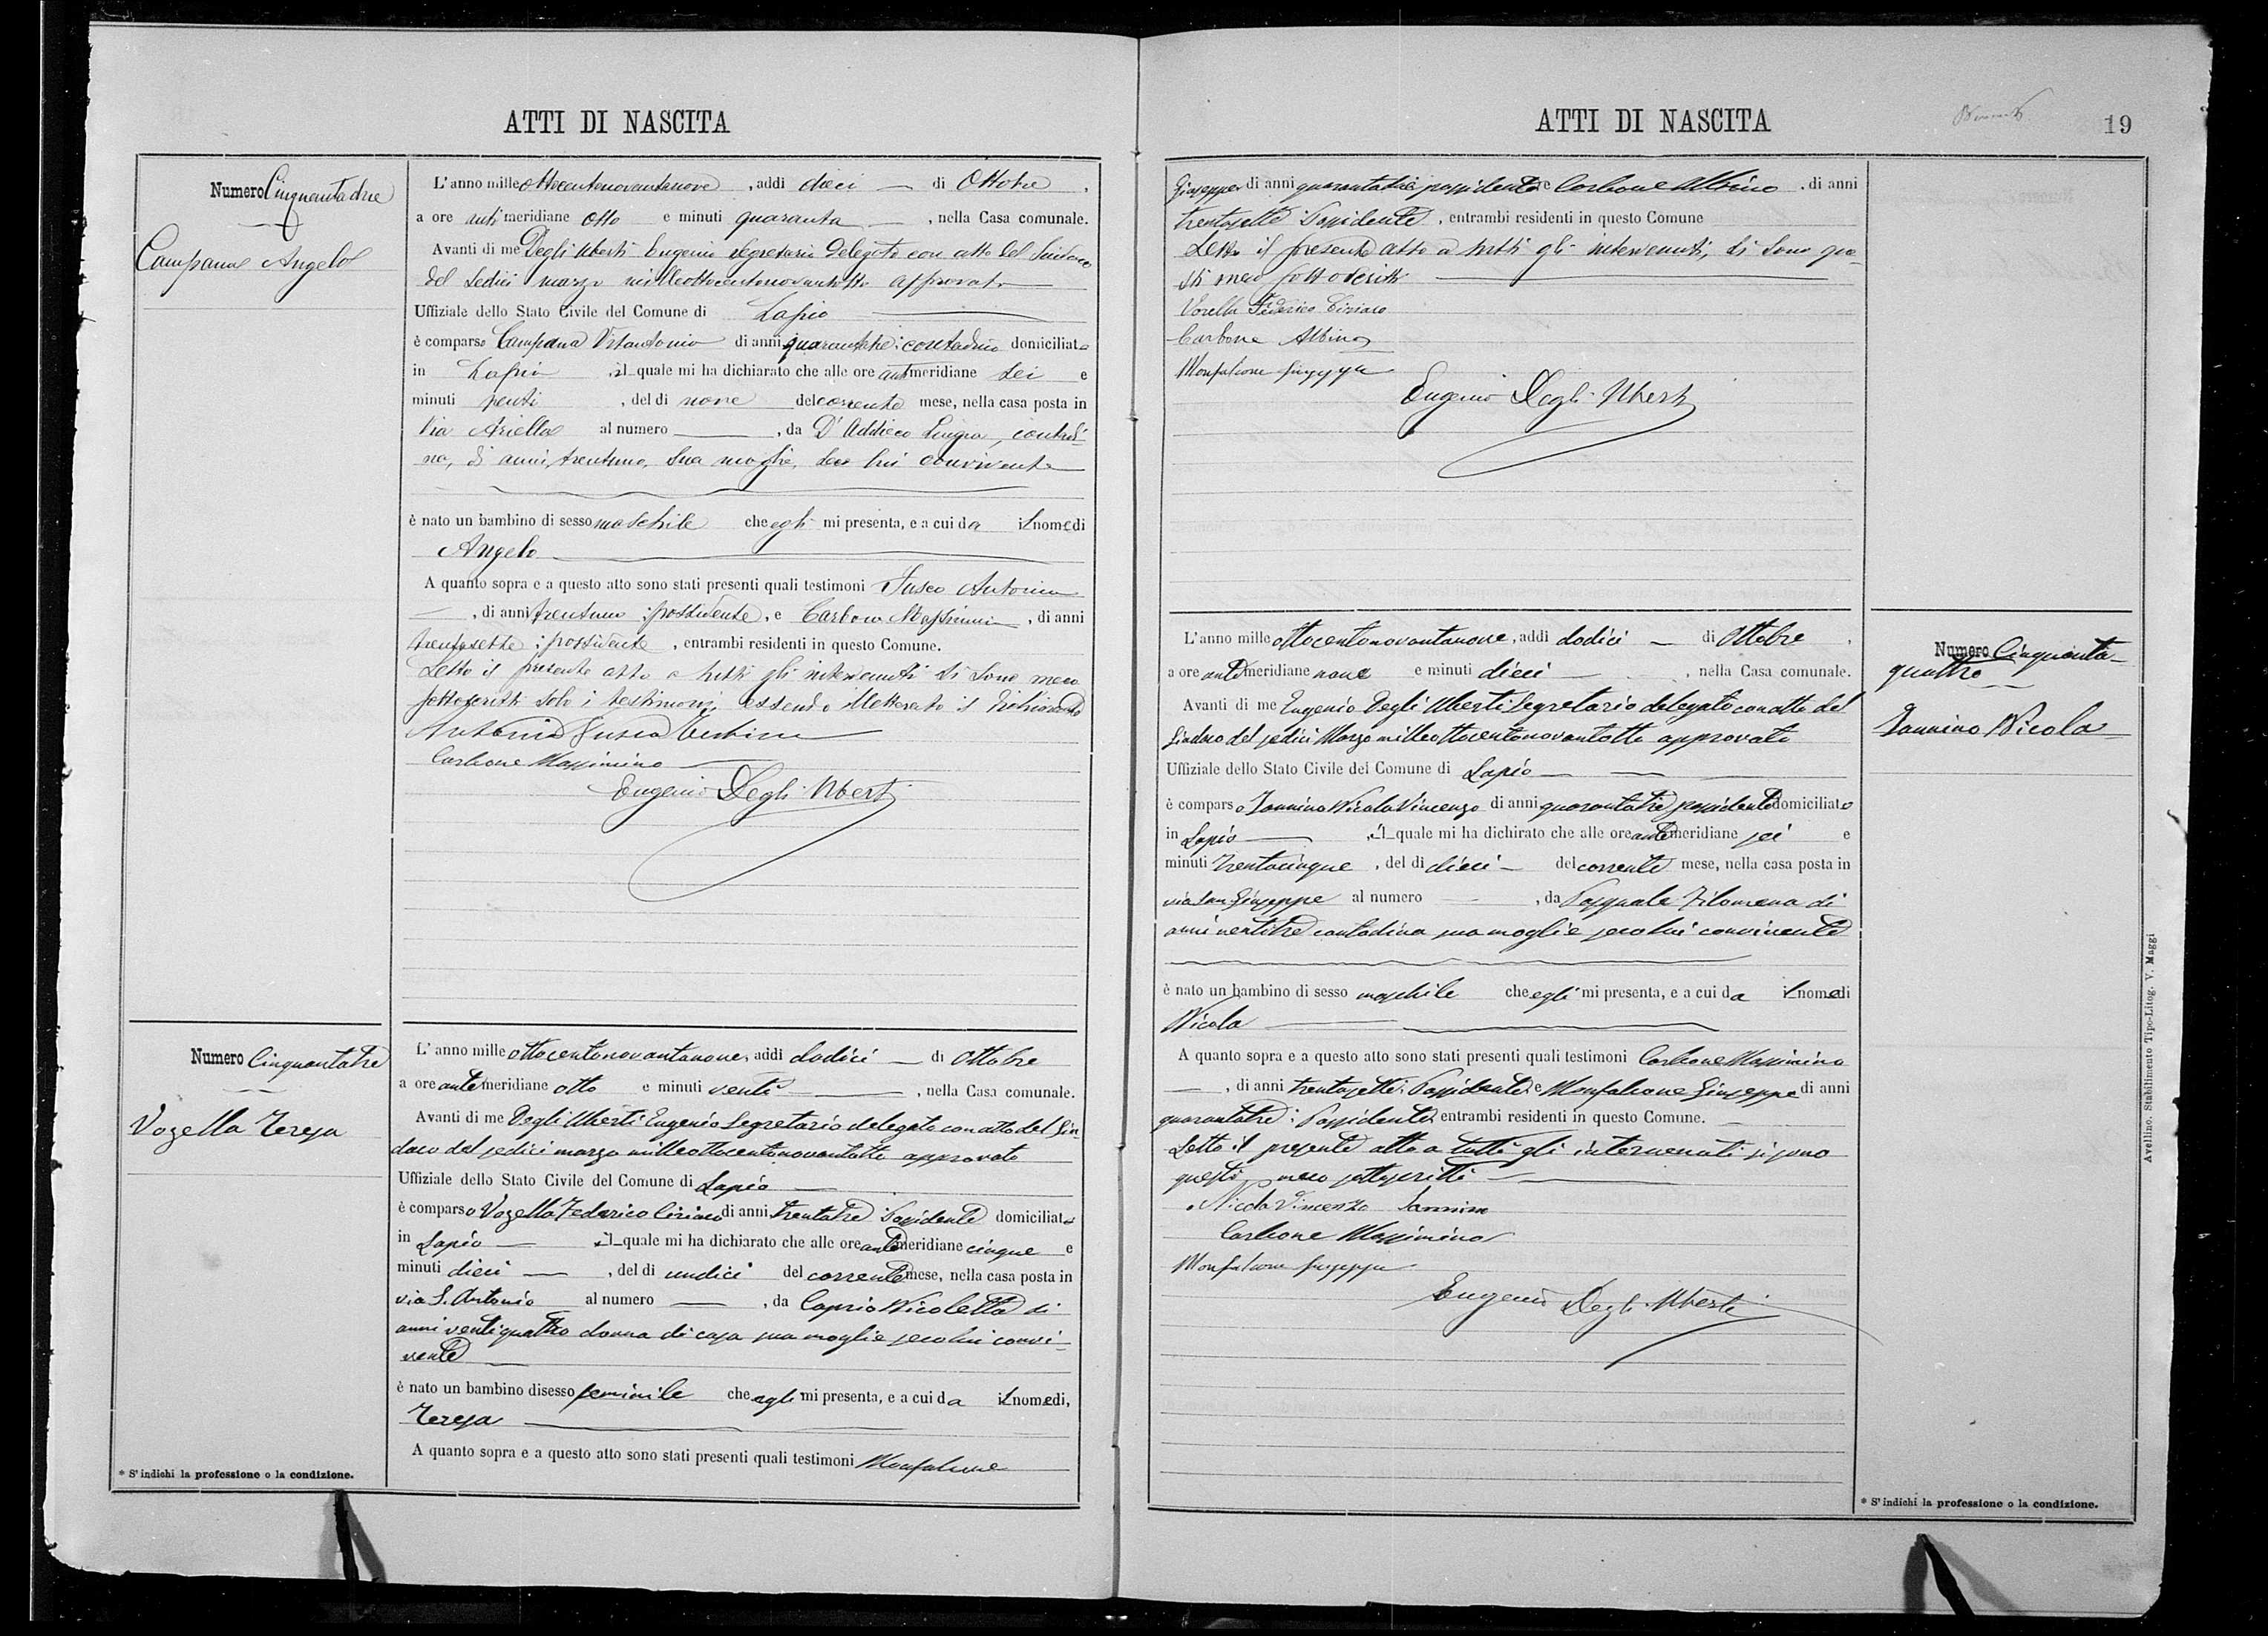 ATTI DI NASCITA
Numero Cinquantadue
Campana Angelo
L'anno mille ottocentonovantanove, addì dieci di Ottobre,
a ore antimeridiane otto e minuti quaranta, nella Casa comunale.
Avanti di me Degli Uberti Eugenio Segretario delegato con atto del Sindaco
del sedici marzo milleottocentonovantotto approvato
Uffiziale dello Stato Civile del Comune di Lapio
è comparso Campana Vitantonio di anni quarantatre; contadino domiciliato
in Lapio, il quale mi ha dichiarato che alle ore antmeridiane sei e
minuti venti, del dì nove del corrente mese, nella casa posta in
Via Ariella al numero , da D'Addieco , contadi-
na, di anni trentuno, sua moglie, seco lui convivente
è nato un bambino di sesso maschile che egli mi presenta, e a cui da il nome di
Angelo
A quanto sopra e a questo atto sono stati presenti quali testimoni Fusco Antonino
, di anni trentuno; possidente, e Carbone Massimino, di anni
trentasette; possidente, entrambi residenti in questo Comune.
Letto il presente atto a tutti gli intervenuti si sono meco
sottoscritti solo i testimoni, essendo illetterato il dichiarante
Antonino Fusco
Carbone Massimino
Eugenio Degli Uberti
Numero Cinquantatre
Vozella Teresa
L'anno mille ottocentonovantanove, addì dodici di Ottobre
a ore antemeridiane otto e minuti venti, nella Casa comunale.
Avanti di me Degli Uberti Eugenio Segretario delegato con atto del Sin-
daco del sedici marzo milleottocentonovantotto approvato
Uffiziale dello Stato Civile del Comune di Lapio
è comparso Vozella Federico Ciriaco di anni trentatre Possidente domiciliato
in Lapio il quale mi ha dichiarato che alle ore antemeridiane cinque e
minuti dieci, del dì undici del corrente mese, nella casa posta in
via S. Antonio al numero , da Caprio Nicoletta di
anni ventiquattro donna di casa sua moglie seco lui convi-
vente
è nato un bambino di sesso feminile che egli mi presenta, e a cui da il nome di,
Teresa
A quanto sopra e a questo atto sono stati presenti quali testimoni Monfalcone
* S'indichi la professione o la condizione.
ATTI DI NASCITA
19
Giuseppe di anni quarantatre possidente e Carbone Albino, di anni
trentasette Possidente, entrambi residenti in questo Comune
Letto il presente atto a tutti gli intervenuti, si sono que-
sti meco sottoscritti
Vozella Federico Ciriaco
Carbone Albino
Monfalcone Giuseppe
Eugenio Degli Uberti
Numero Cinquanta-
quattro
Iannino Nicola
L'anno mille ottocentonovantanove, addì dodici di Ottobre,
a ore antemeridiane nove e minuti dieci, nella Casa comunale.
Avanti di me Eugenio Degli Uberti Segretario delegato con atto del
Sindaco del sedici Marzo milleottocentonovantotto approvato
Uffiziale dello Stato Civile del Comune di Lapio
è comparso Iannino Nicola Vincenzo di anni quarantatre possidente domiciliato
in Lapio, il quale mi ha dichirato che alle ore antemeridiane sei e
minuti trentacinque, del dì dieci del corrente mese, nella casa posta in
via San Giuseppe al numero , da Pasquale Filomena di
anni ventitre contadina sua moglie seco lui convivente
è nato un bambino di sesso maschile che egli mi presenta, e a cui da il nome di
Nicola
A quanto sopra e a questo atto sono stati presenti quali testimoni Carbone Massimino
, di anni trentasette; Possidente, e Monfalcone Giuseppe di anni
quarantatre; Possidente entrambi residenti in questo Comune.
Letto il presente atto a tutti gli intervenuti si sono
questi meco sottoscritti
Nicola Vincenzo Iannino
Carbone Massimino
Monfalcone Giuseppe
Eugenio Degli Uberti
* S'indichi la professione o la condizione.
Avellino. Stabilimento Tipo-Litog. V. Maggi